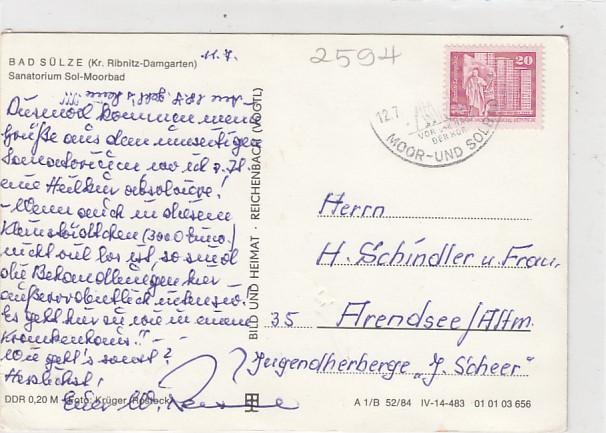 BAD SÜLZE (Kr. Ribnitz-Damgarten)
Sanatorium Sol-Moorbad
11.7.
2594
20
12.7
MOOR- UND SOL
Diesmal kommen meine
Grüße aus dem hiesigen
Sanatorium wo ich z. Zt.
eine Heilkur absolviere!
– Wenn auch in diesem
Kleinstädtchen (3000 Einw.)
nicht viel los ist, so sind
die Behandlungen hier –
außerordentlich intensiv!
Es geht hier zu wie in einem
Krankenhaus!! –
Wie geht's sonst?
Herzlichst!
Euer W.
BILD UND HEIMAT · REICHENBACH (VOGTL)
Herrn
H. Schindler u. Frau,
35 Arendsee/Altm.
Jugendherberge „J. Scheer"
DDR 0,20 M Foto: Krüger (Rostock)
A 1/B 52/84 IV-14-483 01 01 03 656